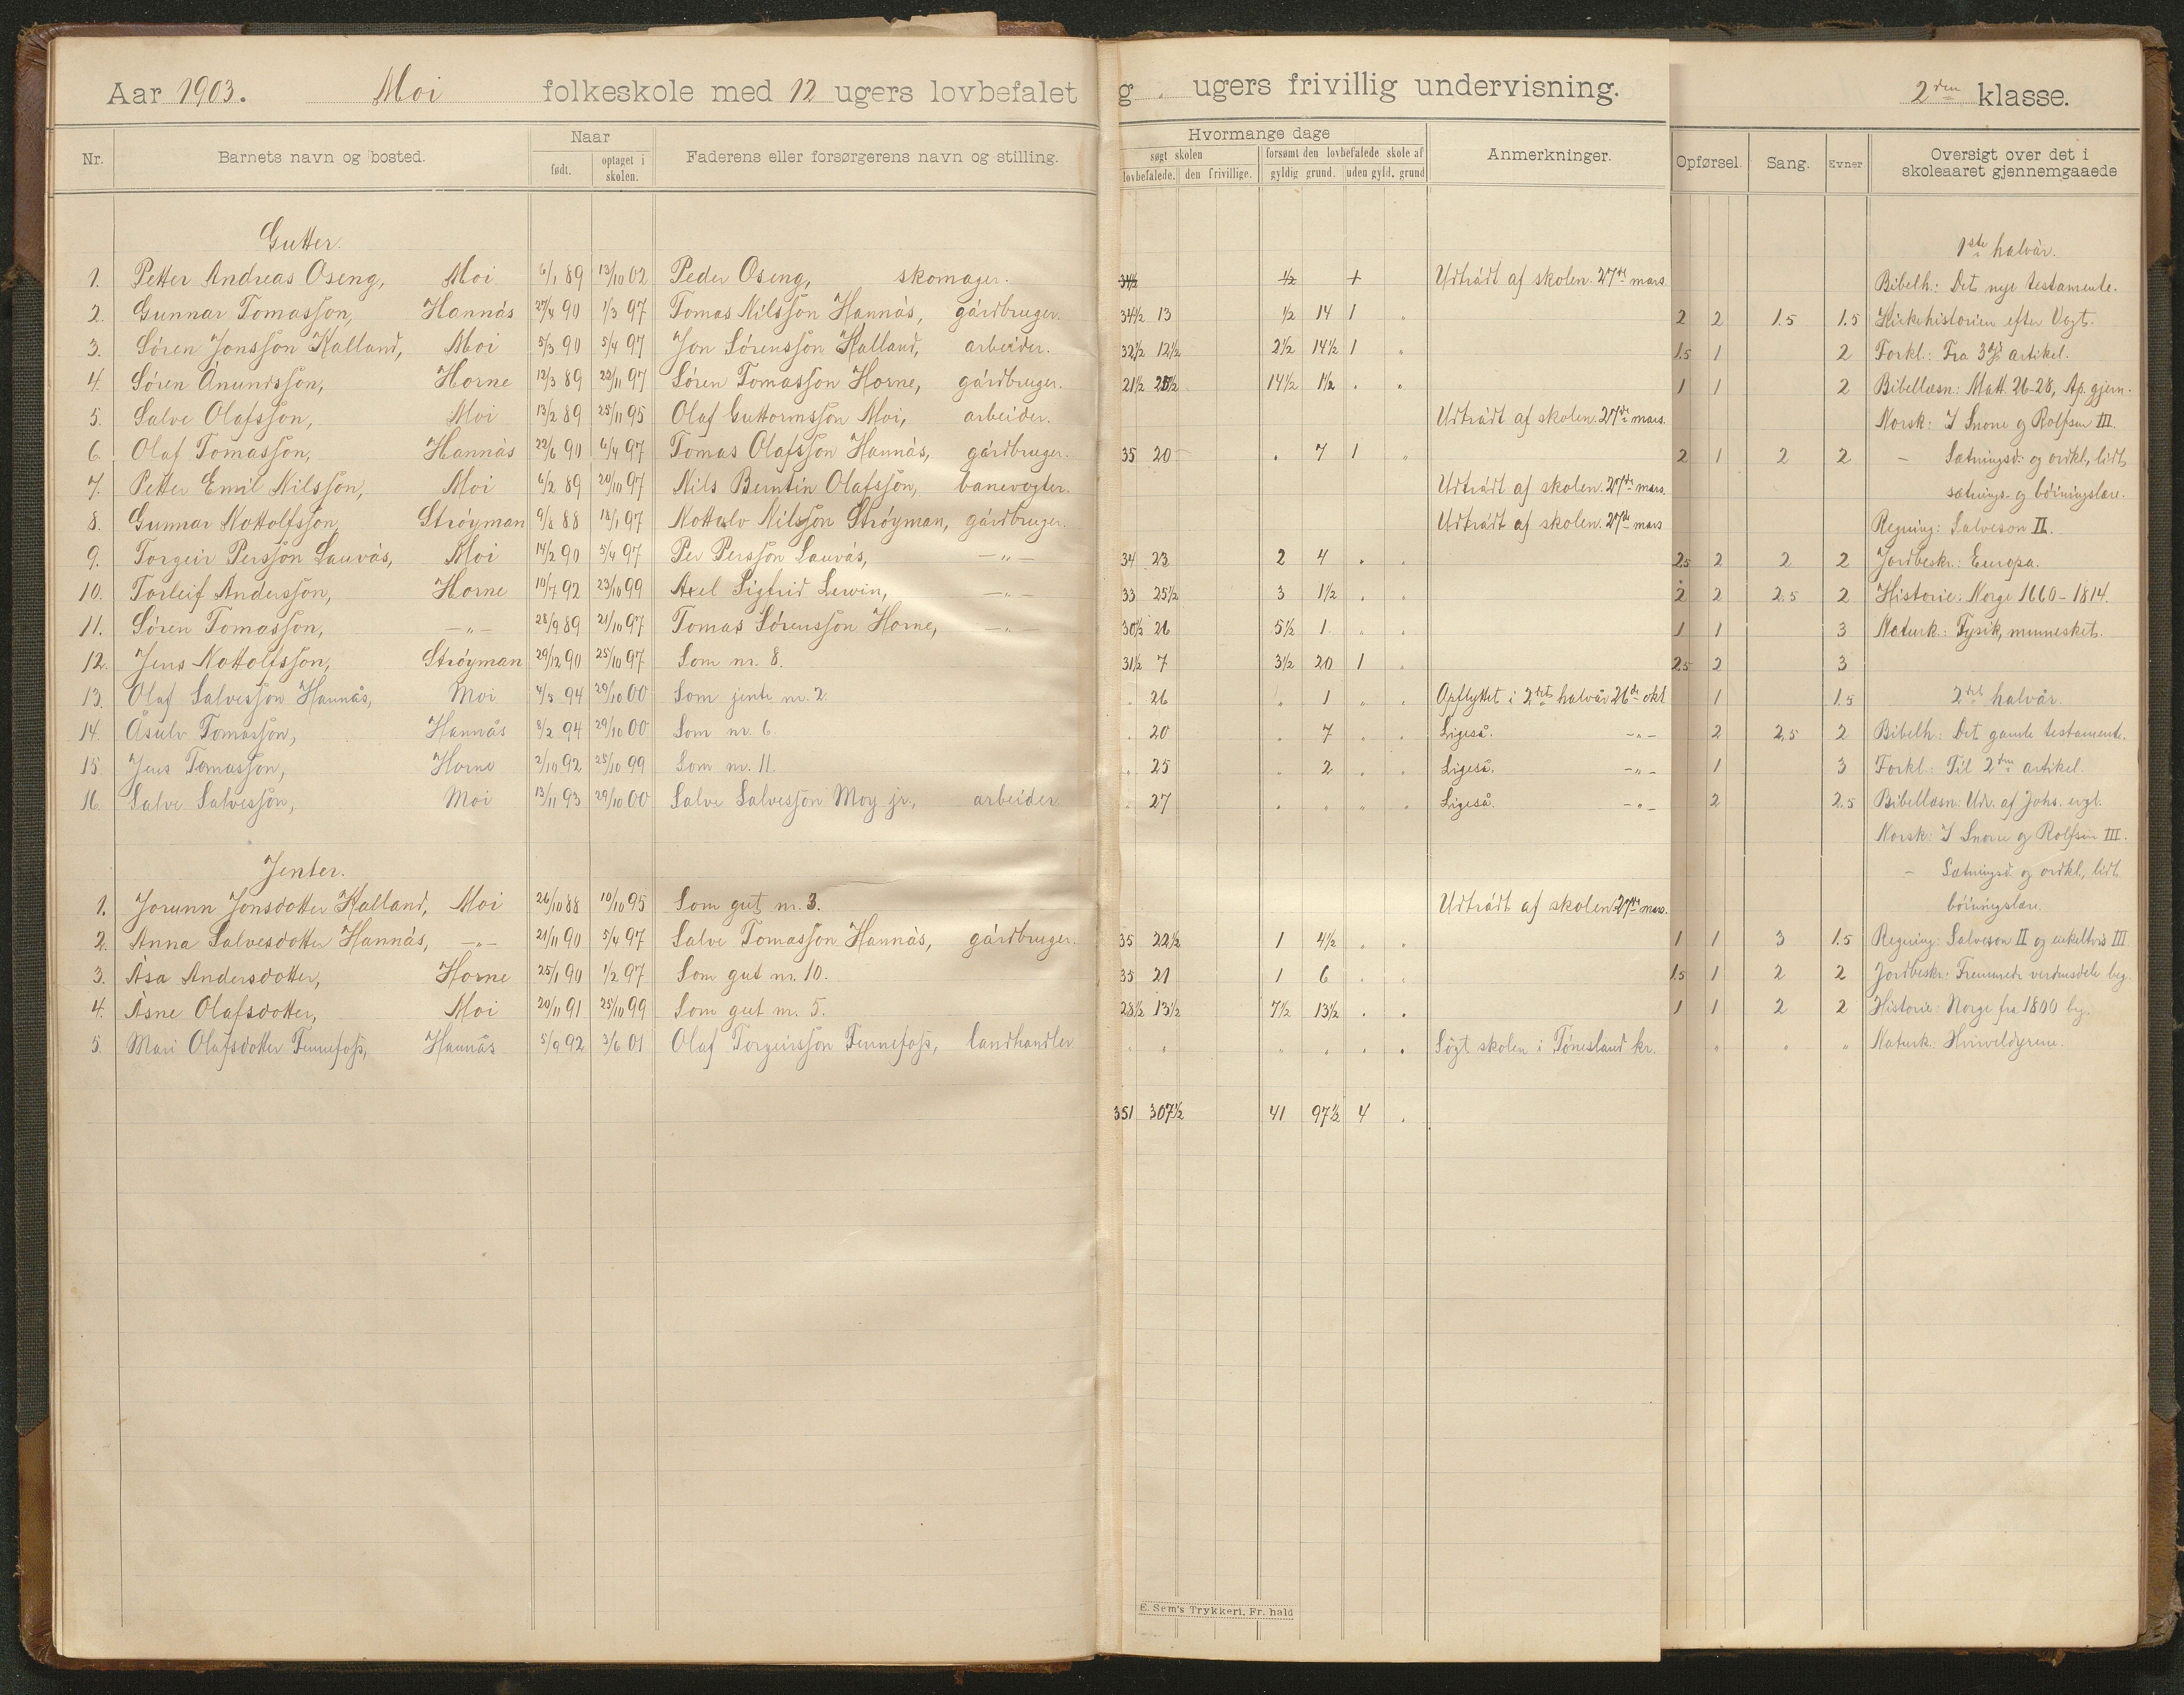 Aar 1903. Moi folkeskole med 12 ugers lovbefalet g . ugers frivillig undervisning. 2den klasse.
Nr. Barnets navn og bosted. Naar født. optaget i skolen. Faderens eller forsørgerens navn og stilling. Hvormange dage søgt skolen lovbefalede. den frivillige. forsømt den lovbefalede skole af gyldig grund. uden gyld. grund Anmerkninger. Opførsel. Sang. Evner Oversigt over det i skoleaaret gjennemgaaede
Gutter. 1ste halvår.
1. Petter Andreas Oseng, Moi 6/1 89 13/10 02 Peder Oseng, skomager. 34½ ½ + Udtrådt af skolen 27de mars. Bibelh.: Det nye testamente.
2. Gunnar Tomasson, Hannås 27/4 90 1/3 97 Tomas Nilsson Hannås, gårdbruger. 34½ 13 ½ 14 1 . 2 2 1.5 1.5 Kirkehistorien efter Vogt.
3. Søren Jonsson Kalland, Moi 5/3 90 5/4 97 Jon Sørensson Kalland, arbeider. 32½ 12½ 2½ 14½ 1 „ 1.5 1 2 Forkl.: Fra 3dje artikel.
4. Søren Ånundsson, Horne 12/3 89 22/11 97 Søren Tomasson Horne, gårdbruger. 21½ 25½ 14½ 1½ . „ 1 1 2 Bibellæsn: Matt. 26-28, Ap. gjern.
5. Salve Olafsson, Moi 13/2 89 25/11 95 Olaf Guttormsson Moi, arbeider. Udtrådt af skolen 27de mars. Norsk: I Snorre og Rolfsen III.
6. Olaf Tomasson, Hannås 22/6 90 6/4 97 Tomas Olafsson Hannås, gårdbruger. 35 20 . 7 1 „ 2 1 2 2 — Sætningsd: og ordkl., lidt
7. Petter Emil Nilsson, Moi 6/2 89 20/10 97 Nils Berntin Olafsson, banevogter. Udtrådt af skolen 27de mars. sætnings- og bøiningslære.
8. Gunnar Nottolfsson, Strøyman 9/8 88 18/1 97 Nottulv Nilsson Strøyman, gårdbruger. Udtrådt af skolen 27de mars Regning: Salveson II.
9. Torgeir Persson Lauvås, Moi 14/2 90 5/4 97 Per Persson Lauvås, —„— 34 23 2 4 . . 2.5 2 2 2 Jordbeskr.: Europa.
10. Torleif Andersson, Horne 10/7 92 23/10 99 Axel Sigfrid Lewin, —„— 33 25½ 3 1½ . . 2 2 2.5 2 Historie: Norge 1660-1814.
11. Søren Tomasson, —„— 28/9 89 21/10 97 Tomas Sørensson Horne, —„— 30½ 26 5½ 1 . . 1 1 3 Naturk.: Fysik, mennesket.
12. Jens Nottolfsson, Strøyman 29/12 90 25/10 97 Som nr. 8. 31½ 7 3½ 20 1 . 2.5 2 3
13. Olaf Salvesson Hannås, Moi 4/3 94 29/10 00 Som jente nr. 2. . 26 . 1 „ . Opflyttet i 2det halvår 26de okt 1 1.5 2det halvår.
14. Åsulv Tomasson, Hannås 8/2 94 29/10 00 Som nr. 6. . 20 . 7 . . Ligeså. —„— 2 2.5 2 Bibelh.: Det gamle testamente.
15 Jens Tomasson, Horne 2/10 92 25/10 99 Som nr. 11. . 25 . 2 . . Ligeså. —„— 1 3 Forkl.: Til 2den artikel.
16. Salve Salvesson, Moi 13/11 93 29/10 00 Salve Salvesson Moy jr., arbeider . 27 . . . . Ligeså. —„— 2 2.5 Bibellæsn: Udv. af Johs. evgl.
Norsk: I Snorre og Rolfsen III.
Jenter. — Sætningsd. og ordkl., lidt
1. Jorunn Jonsdotter Kalland, Moi 26/10 88 10/10 95 Som gut nr. 3. Udtrådt af skolen 27de mars. bøiningslære.
2. Anna Salvesdotter Hannås, —„— 21/11 90 5/4 97 Salve Tomasson Hannås, gårdbruger. 35 22½ 1 4½ . . 1 1 3 1.5 Regning: Salveson II og enkeltvis III
3. Åsa Andersdotter, Horne 25/1 90 1/2 97 Som gut nr. 10. 35 21 1 6 . . 1.5 1 2 2 Jordbeskr: Fremmede verdensdele beg.
4. Åsne Olafsdotter, Moi 20/11 91 25/10 99 Som gut nr. 5. 28½ 13½ 7½ 13½ . . 1 1 2 2 Historie: Norge fra 1800 beg.
5. Mari Olafsdotter Fennefoss, Hannås 5/9 92 3/6 01 Olaf Torgeirsson Fennefoss, landhandler „ „ „ . . . Søgt skolen i Tønesland kr. „ „ „ Naturk.: Hvirveldyrene.
351 307½ 41 97½ 4 .
E. Sem's Trykkeri. Fr. hald